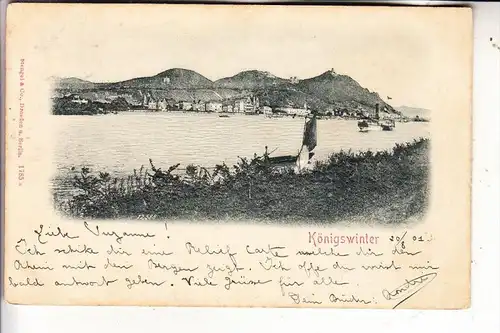 Stengel & Co., Dresden u. Berlin. 1785
Königswinter
Liebe Suzanne!
Ich schike dir eine Relief Carte welche dir den
Rhein mit den Bergen zeigt. Ich offe du wirst mir
bald antwort geben. Viele grüsse für alle
Dein Brüder: